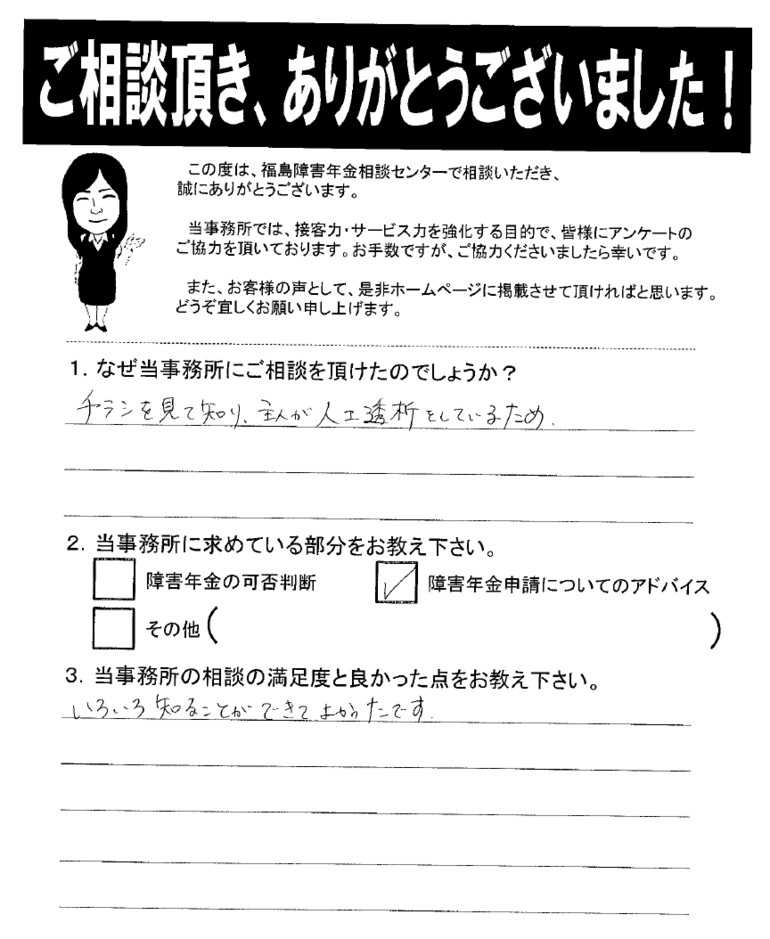 ご相談頂き、ありがとうございました！
この度は、福島障害年金相談センターで相談いただき、
誠にありがとうございます。
当事務所では、接客力・サービス力を強化する目的で、皆様にアンケートの
ご協力を頂いております。お手数ですが、ご協力くださいましたら幸いです。
また、お客様の声として、是非ホームページに掲載させて頂ければと思います。
どうぞ宜しくお願い申し上げます。
1. なぜ当事務所にご相談を頂けたのでしょうか？
チラシを見て知り、主人が人工透析をしているため.
2. 当事務所に求めている部分をお教え下さい。
障害年金の可否判断 障害年金申請についてのアドバイス
その他（ ）
3. 当事務所の相談の満足度と良かった点をお教え下さい。
いろいろ知ることができてよかったです.